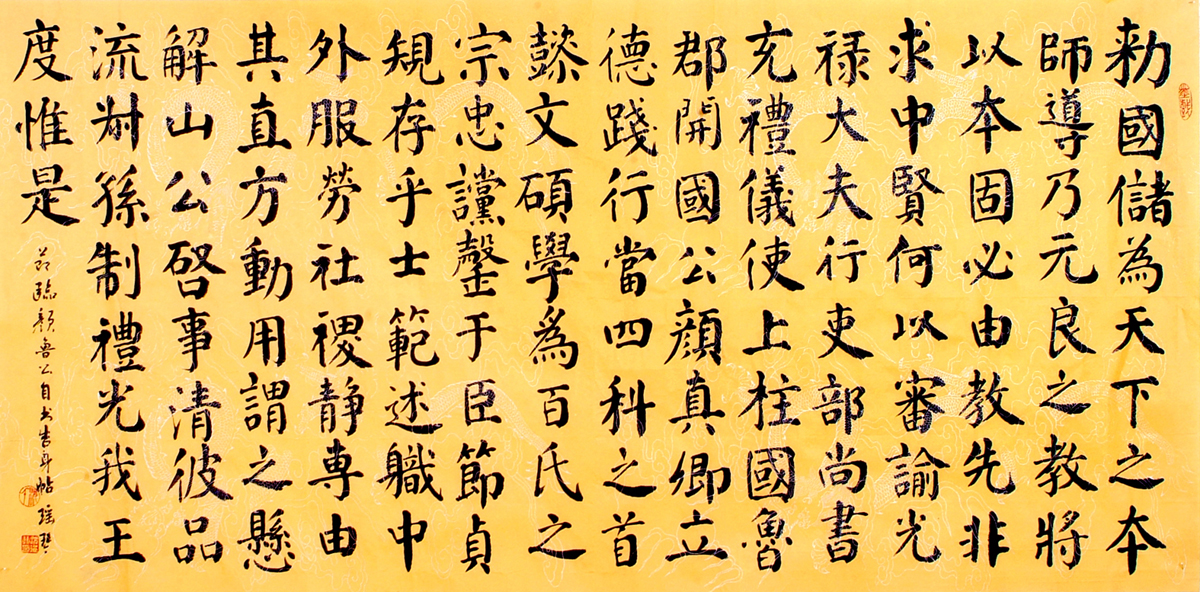 勅國儲為天下之本
師導乃元良之教將
以本固必由教先非
求中賢何以審諭光
禄大夫行吏部尚書
充禮儀使上柱國魯
郡開國公顔真卿立
德踐行當四科之首
懿文碩學爲百氏之
宗忠讜罄于臣節貞
規存乎士範述職中
外服勞社稷静専由
其直方動用謂之懸
解山公啓事清彼品
流叔孫制禮光我王
度惟是
節臨顔魯公自书告身帖